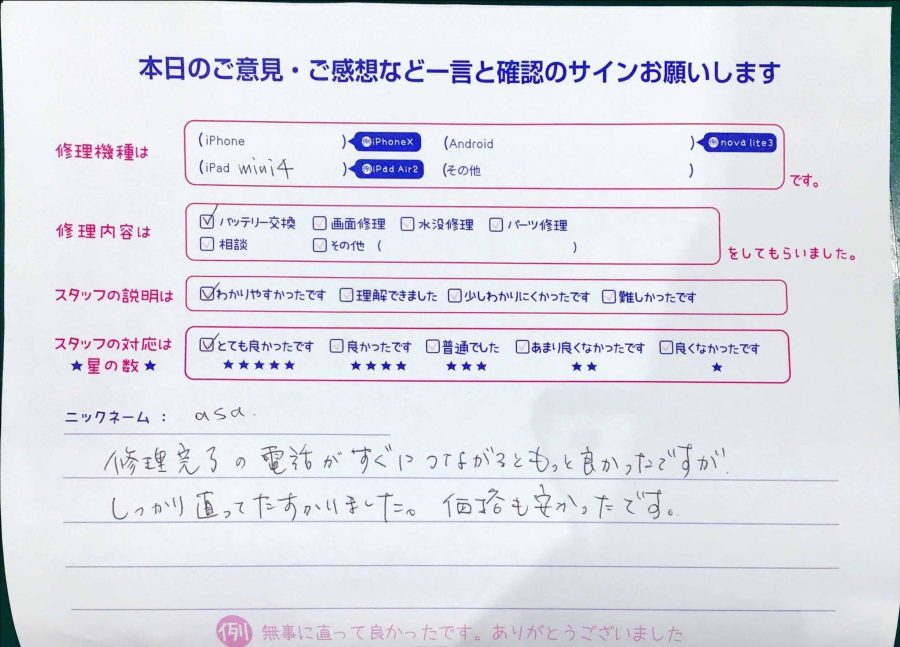 本日のご意見・ご感想など一言と確認のサインお願いします
修理機種は (iPhone ) 例iPhoneX (Android ) 例nova lite3
(iPad mini4 ) 例iPad Air2 (その他 ) です。
修理内容は バッテリー交換 画面修理 水没修理 パーツ修理
相談 その他 ( ) をしてもらいました。
スタッフの説明は わかりやすかったです 理解できました 少しわかりにくかったです 難しかったです
スタッフの対応は とても良かったです 良かったです 普通でした あまり良くなかったです 良くなかったです
★星の数★ ★★★★★ ★★★★ ★★★ ★★ ★
ニックネーム: asa.
修理完了の電話がすぐにつながるともっと良かったですが
しっかり直ってたすかりました。価格も安かったです。
例 無事に直って良かったです。ありがとうございました